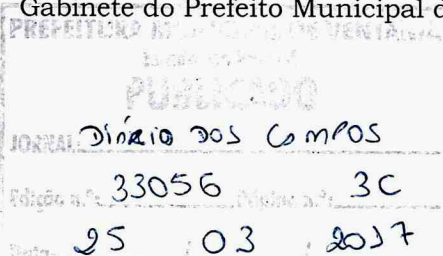 Gabinete do Prefeito Municipal d
PREFEITURA MUNICIPAL DE VENTANIA
PUBLICADO
JORNAL DIÁRIO DOS CAMPOS
Edição n.º: 33056 Página n.º: 3C
Data 25 / 03 / 2017